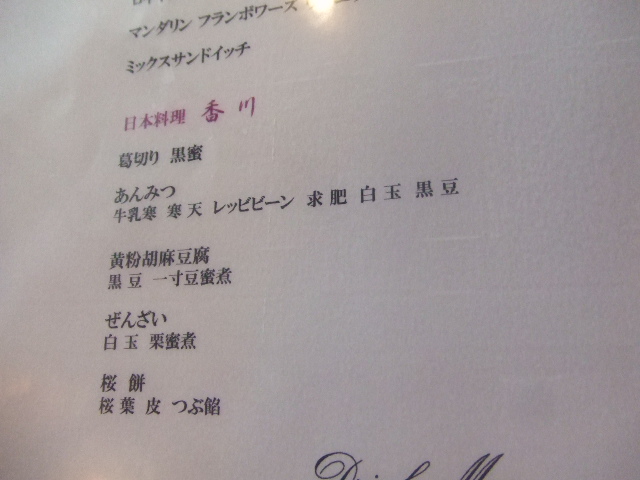 マンダリン フランボワーズ
ミックスサンドイッチ
日本料理 香川
葛切り 黒蜜
あんみつ
牛乳寒 寒天 レッビビーン 求肥 白玉 黒豆
黄粉胡麻豆腐
黒豆 一寸豆蜜煮
ぜんざい
白玉 栗蜜煮
桜餅
桜葉 皮 つぶ餡